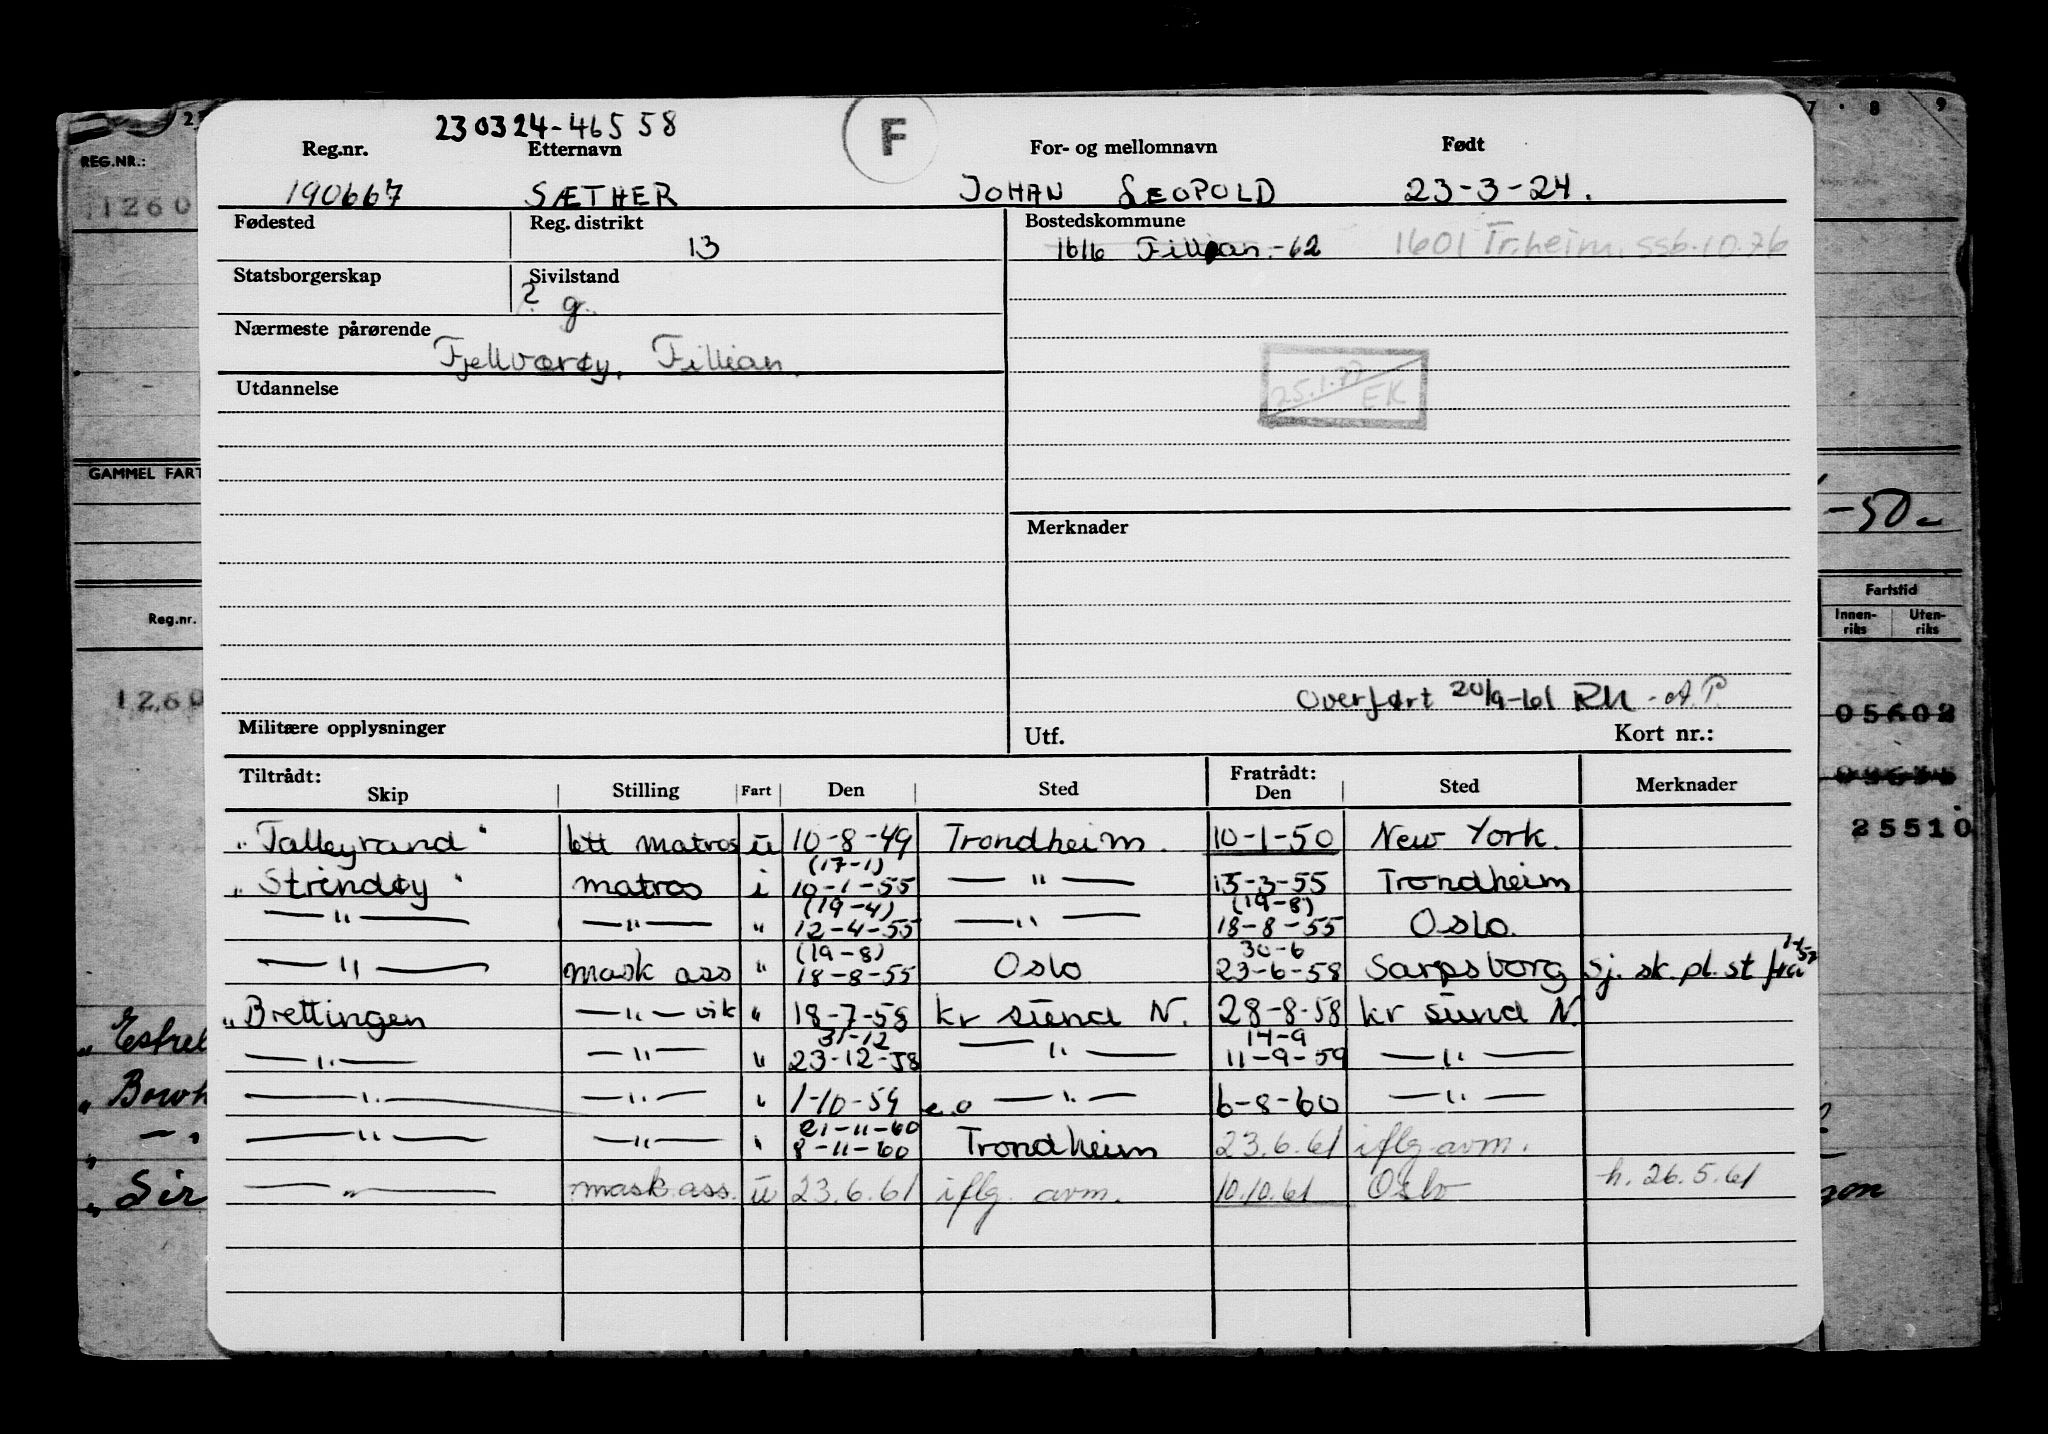 230324-46558
F
Reg.nr. Etternavn For- og mellomnavn Født
190667 SÆTHER JOHAN LEOPOLD 23-3-24.
Fødested Reg. distrikt Bostedskommune
13 1616 Fillan -62 1601 Tr.heim. ssb.10.76
Statsborgerskap Sivilstand
? g.
Nærmeste pårørende
Fjellværøy, Fillan.
25.1.77 EK
Utdannelse
Merknader
Overført 20/9-61 RH - A.P.
Militære opplysninger Utf. Kort nr.:
Tiltrådt: Fratrådt:
Skip Stilling Fart Den Sted Den Sted Merknader
"Talleyrand" lett matros u 10-8-49 Trondheim. 10-1-50 New York.
(17-1)
"Strindøy" matros i 10-1-55 — " — 15-3-55 Trondheim
(19-4) (19-8)
— " — — " — " 12-4-55 — " — 18-8-55 Oslo.
(19-8) 30-6
— " — mask ass " 18-8-55 Oslo 23-6-58 Sarpsborg sj. sk. pl. st fra
"Brettingen — " — vik " 18-7-58 kr sund N. 28-8-58 kr sund N.
31-12 14-9
— " — — " — " 23-12-58 — " — 11-9-59 — " —
— " — — " — " 1-10-59 e.o — " — 6-8-60 — " —
21-11-60
— " — — " — " 8-11-60 Trondheim 23.6.61 iflg. avm.
— " — mask.ass. u 23.6.61 iflg. avm. 10.10.61 Oslo h. 26.5.61
REG.NR.:
1260
GAMMEL FART
Reg.nr.
1260
"Estrel
"Bowh
"Sir
7 · 8 9
-50-
Fartstid
Innen-
riks
Uten-
riks
05602
25510